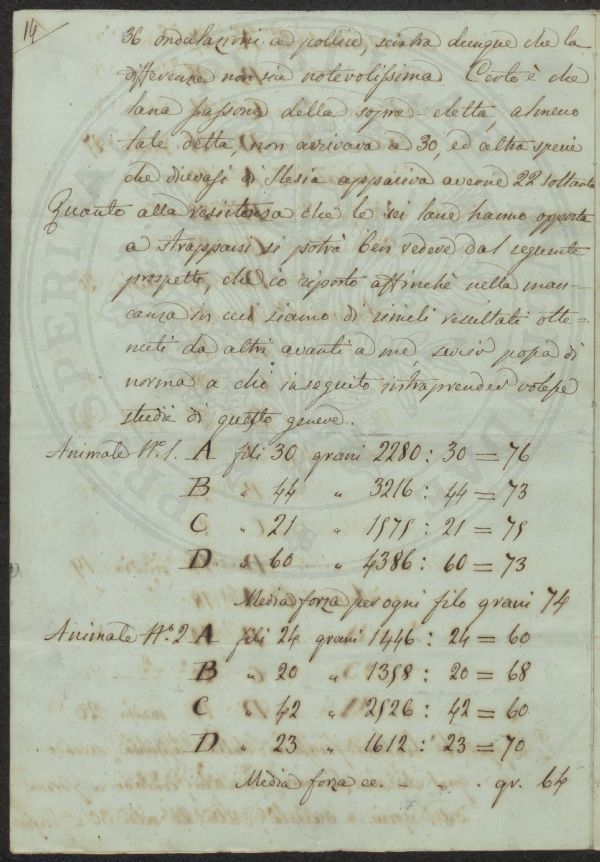 14
36 ondulazioni a pollice, sembra dunque che la
differenza non sia notevolissima. Certo è che
lana passona della sopra-eletta, almeno
tale detta, non arrivava a 30, ed altra specie
che dicevasi di Slesia appariva averne 22 soltanto
Quanto alla resistenza che le sei lane hanno opposta
a strapparsi si potrà ben vedere dal seguente
prospetto, che io riporto affinchè nella man-
canza in cui siamo di simili resultati otte-
nuti da altri avanti a me servir possa di
norma a chi in seguito intraprender volesse
studie di questo genere.
Animale N.º 1. A fili 30 grani 2280 : 30 = 76
B " 44 " 3216 : 44 = 73
C " 21 " 1575 : 21 = 75
D " 60 " 4386 : 60 = 73
Media forza per ogni filo grani 74
Animale N.º 2 A fili 24 grani 1446 : 24 = 60
B " 20 " 1358 : 20 = 68
C " 42 " 2526 : 42 = 60
D " 23 " 1612 : 23 = 70
Media forza ec. - - . gr. 64